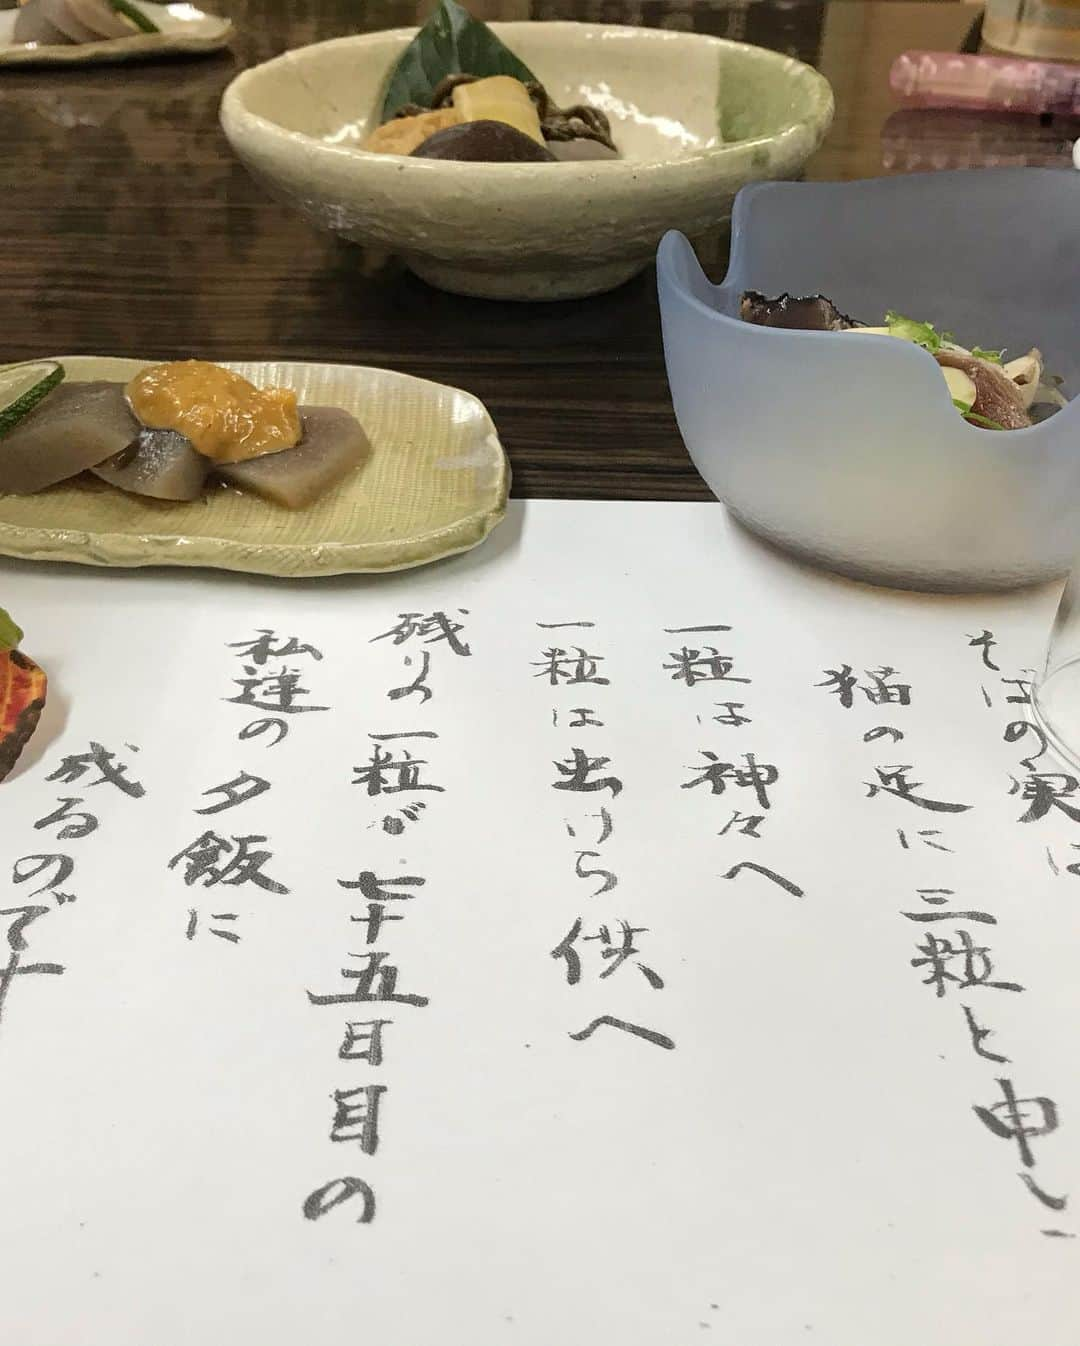 そばの実は
猫の足に三粒と申し
一粒は神々へ
一粒は虫けら供へ
残りの一粒が七十五日目の
私達の夕飯に
成るのです